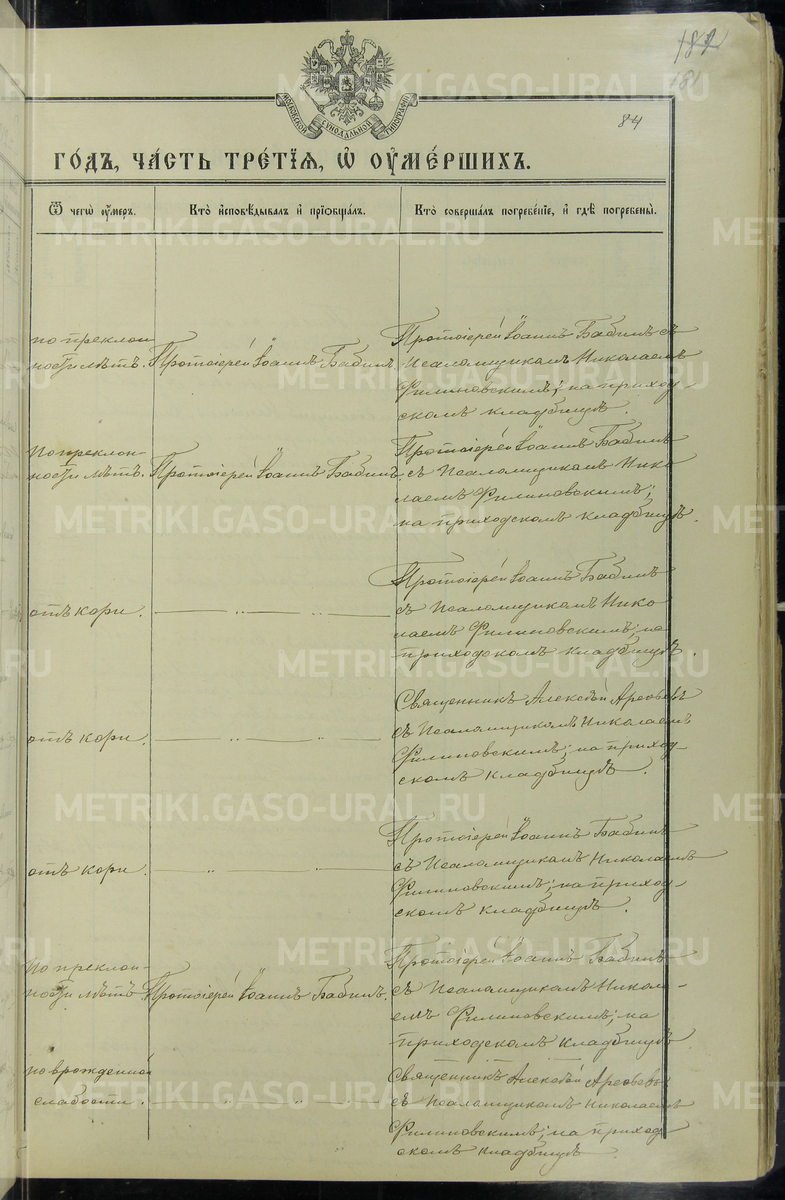 187
181
84
МОСКОВСКОЙ СѴНОДАЛЬНОЙ ТИПОГРАФІИ
ГО́ДЪ, ЧА́СТЬ ТРЕ́ТІѦ, Ѡ҆ ОУ҆МЕ́РШИХЪ.
Ѿ чегѡ̀ оу҆́меръ.
Кто̀ и҆сповѣ́дывалъ и҆ прїѻбща́лъ.
Кто̀ соверша́лъ погребе́нїе, и҆ гдѣ̀ погребены̀.
по преклон-
ности лѣтъ.
Протоіерей Іоаннъ Бабинъ
Протоіерей Іоаннъ Бабинъ съ
Псаломщикомъ Николаемъ
Филиновскимъ; на приход-
скомъ кладбищѣ.
По преклон-
ности лѣтъ.
Протоіерей Іоаннъ Бабинъ
Протоіерей Іоаннъ Бабинъ
съ Псаломщикомъ Нико
лаемъ Филиновскимъ;
на приходскомъ кладбищѣ.
отъ кори.
Протоіерей Іоаннъ Бабинъ
съ Псаломщикомъ Нико
лаемъ Филиновскимъ; на
приходскомъ кладбищѣ.
отъ кори.
Священникъ Алексѣй
съ Псаломщикомъ Николаемъ
Филиновскимъ; на приход-
скомъ кладбищѣ.
отъ кори.
Протоіерей Іоаннъ Бабинъ
съ Псаломщикомъ Николаемъ
Филиновскимъ; на приход-
скомъ кладбищѣ.
По преклон-
ности лѣтъ
Протоіерей Іоаннъ Бабинъ.
Протоіерей Іоаннъ Бабинъ
съ Псаломщикомъ Никола-
емъ Филиновскимъ; на
приходскомъ кладбищѣ
по врожденной
слабости.
Священникъ Алексѣй
съ Псаломщикомъ Николаемъ
Филиновскимъ; на приход
скомъ кладбищѣ.
METRIKI.GASO-URAL.RU